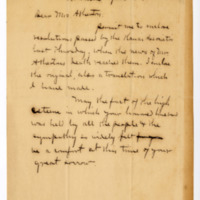 Dear Mrs Atherton,
Permit me to enclose
resolutions passed by the
last Thursday, when the news of Mr
Atherton's death reached them. I enclose
the original, also a translation which
I have made.
May the fact of the high
esteem in which your honored husband
was held by all the people & the
sympathy so widely felt
be a comfort at this time of your
great sorrow